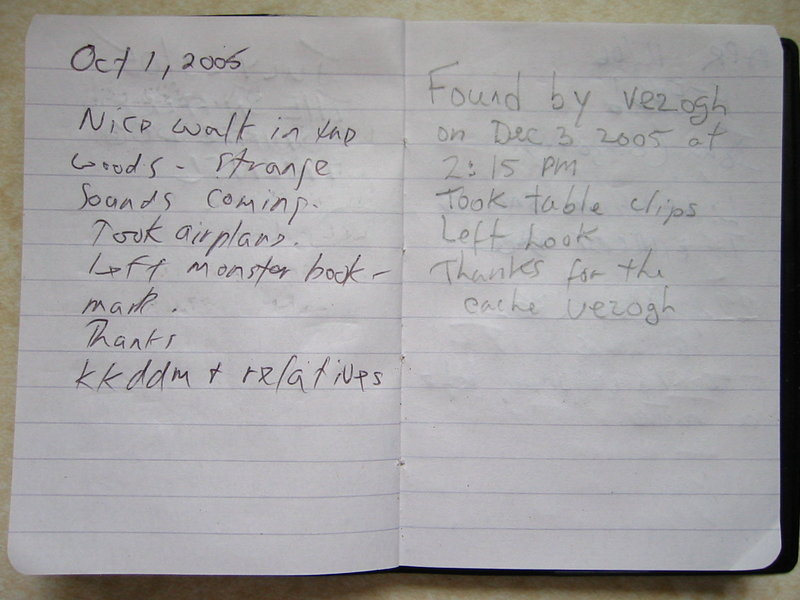 Oct 1, 2005
Nice walk in the
woods - strange
sounds coming.
Took airplane.
Left monster book-
mark.
Thanks
kkddm + relatives
Found by vezogh
on Dec 3 2005 at
2:15 PM
Took table clips
Left hook
Thanks for the
cache vezogh